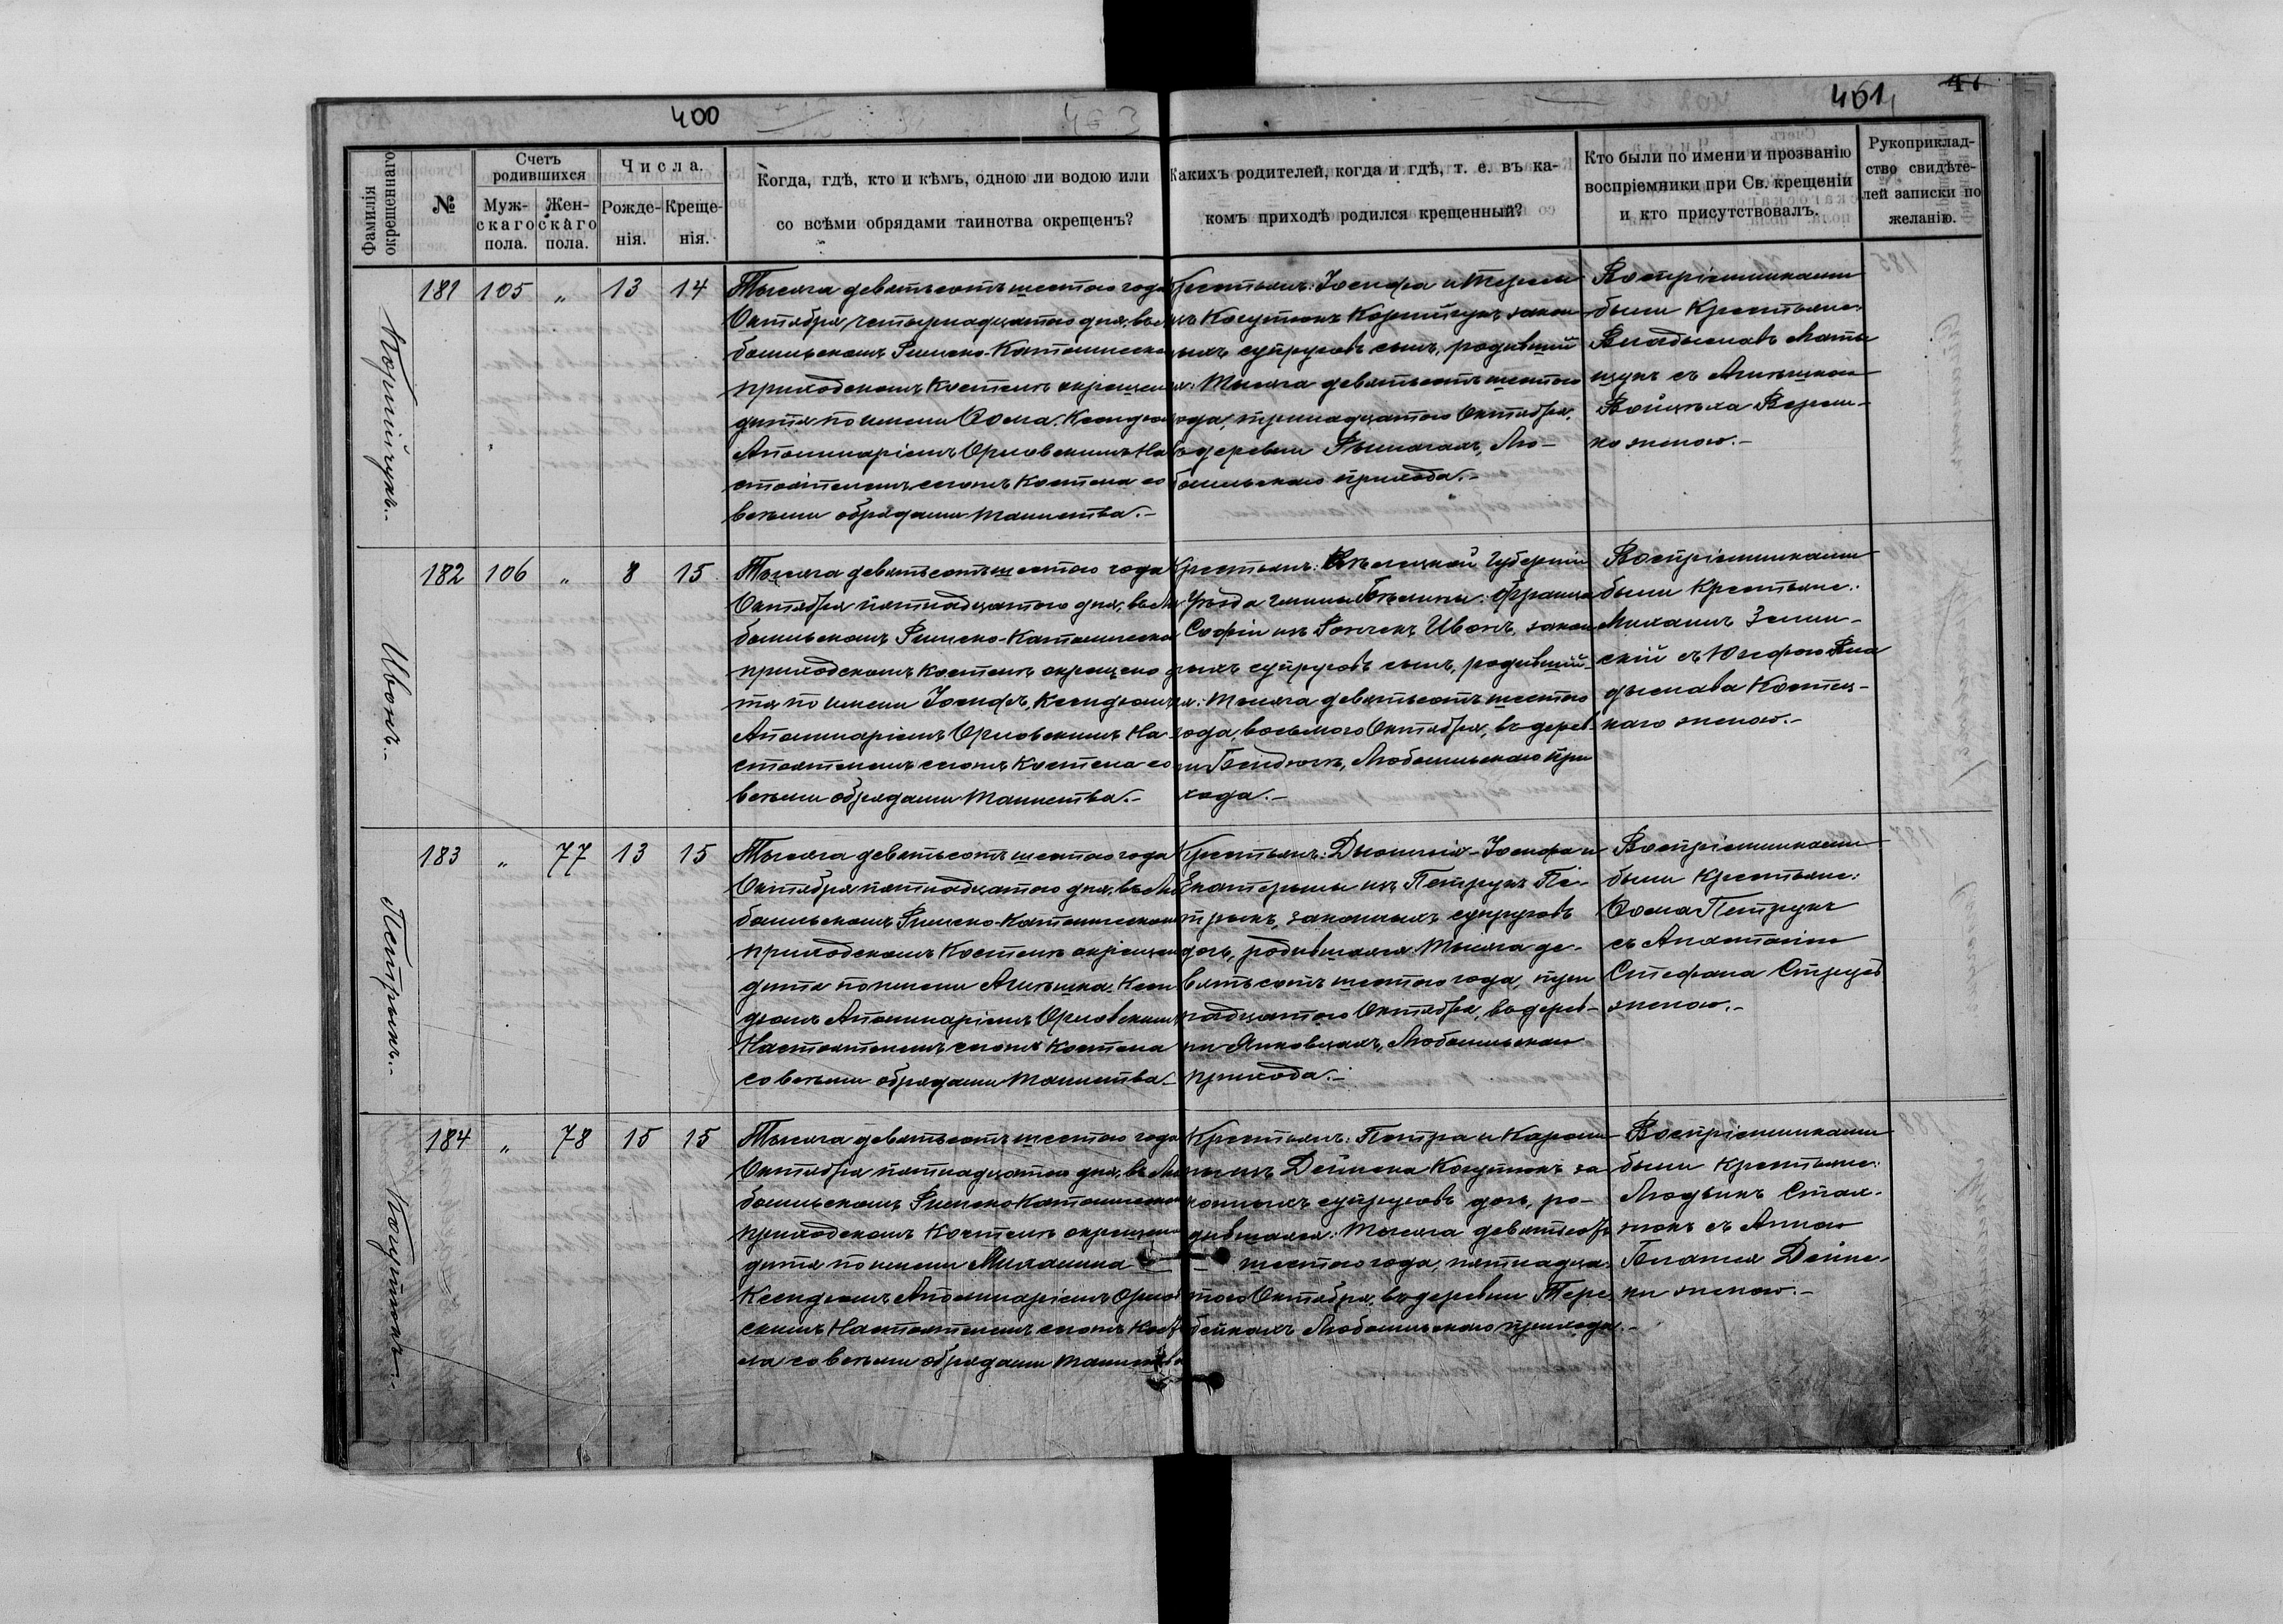 400
461
Фамилія окрещеннаго
№
Счетъ родившихся
Муж-
скаго
пола.
Жен-
скаго
пола.
Числа.
Рожде-
нія.
Креще-
нія.
Когда, гдѣ, кто и кѣмъ, одною ли водою или
со всѣми обрядами таинства окрещенъ?
Какихъ родителей, когда и гдѣ, т. е. въ ка-
комъ приходѣ родился крещенный?
Кто были по имени и прозванію
воспріемники при Св. крещеніи
и кто присутствовалъ.
Рукоприклад-
ство свидѣте-
лей записки по
желанію.
Корнійчукъ.-
181 105 „ 13 14
Тысяча девятьсотъ шестого года
Октября четырнадцатого дня, въ Лю
бомльскомъ Римско-Католическ
приходскомъ Костелѣ окрещен
дитя по имени Ѳома, Ксендзом
Аполинаріемъ Орловскимъ На
стоятелемъ сего Костела со
всѣми обрядами таинства.-
Крестьянъ: Іосифа и Терезы
изъ Когутюкъ Корнійчукъ закон
ныхъ супруговъ сынъ, родивший
ся: Тысяча девятьсотъ шестого
года, тринадцатого Октября,
въ деревни Рымачахъ, Лю-
бомльскаго прихода.-
Воспріемниками
были Крестьяне:
Владыславъ Маты
щукъ съ Агнѣшкою
Войцѣха
женою.-
Ивонъ.-
182 106 „ 8 15
Тысяча девятьсотъ шестого года
Октября пятнадцатого дня, въ Лю
бомльскомъ Римско-Католическом
приходскомъ Костелѣ окрещено ди
тя по имени Іосифъ, Ксендзомъ
Аполинаріемъ Орловскимъ На-
стоятелемъ сего Костела со
всѣми обрядами таинства.-
Крестьянъ: Кѣлецкой Губерніи
Уѣзда гмины
Софіи изъ Ивонъ, закон
ныхъ супруговъ сынъ, родивший-
ся: Тысяча девятьсотъ шестого
года, восьмого Октября, въ дерев-
ни Бендюгѣ, Любомльскаго при
хода.-
Воспріемниками
были Крестьяне:
Михаилъ Зелин-
скій съ Юзефою Вла
дыслава
женою.-
Петрыкъ.-
183 „ 77 13 15
Тысяча девятьсотъ шестого года
Октября пятнадцатого дня, въ Лю
бомльскомъ Римско-Католическом
приходскомъ Костелѣ окрещен
дитя по имени Агнѣшка, Ксен
дзомъ Аполинаріемъ Орловским
Настоятелемъ сего Костела
со всѣми обрядами таинства.-
Крестьянъ: Дыонизія-Іосифа и
Екатерины изъ Петрукъ Пе-
трыкъ, законныхъ супруговъ
дочь, родившаяся: Тысяча де-
вятьсотъ шестого года, три
надцатого Октября, въ дерев-
ни Янковцахъ, Любомльскаго
прихода.-
Воспріемниками
были Крестьяне:
Ѳома Петрукъ
съ Анастасіею
Стефана
женою.-
Когутюкъ.-
184 „ 78 15 15
Тысяча девятьсотъ шестого года
Октября пятнадцатого дня, въ Лю
бомльскомъ Римско Католическом
приходскомъ Костелѣ окрещен
дитя по имени Михалина
Ксендзомъ Аполинаріемъ Орлов
скимъ Настоятелемъ сего Косте
ла со всѣми обрядами таинства
Крестьянъ: Петра и Кароли
ны изъ Дейнека Когутюкъ за
конныхъ супруговъ дочь, ро-
дившаяся: Тысяча девятьсотъ
шестого года, пятнадца-
того Октября, въ деревни Тере
бейкахъ Любомльскаго прихода.-
Воспріемниками
были Крестьяне:
Людвикъ Стах-
нюкъ съ Анною
Дейне-
ки женою.-